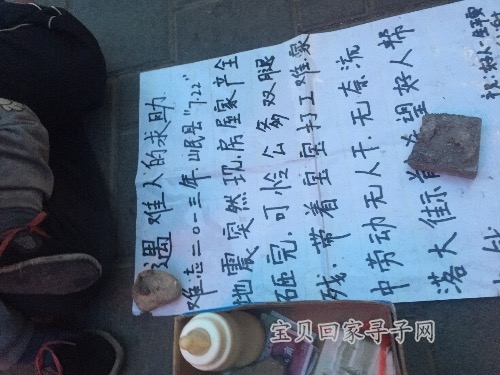 遇难人的求助
难忘二〇一三年岷县"7.22"
地震突然现,房屋家产全
砸完,可怜公爹双腿
残,带着宝宝打工难,家
中劳动无人干,无奈流
落大街 希望好人帮
祝:好人一生平安
宝贝回家寻子网